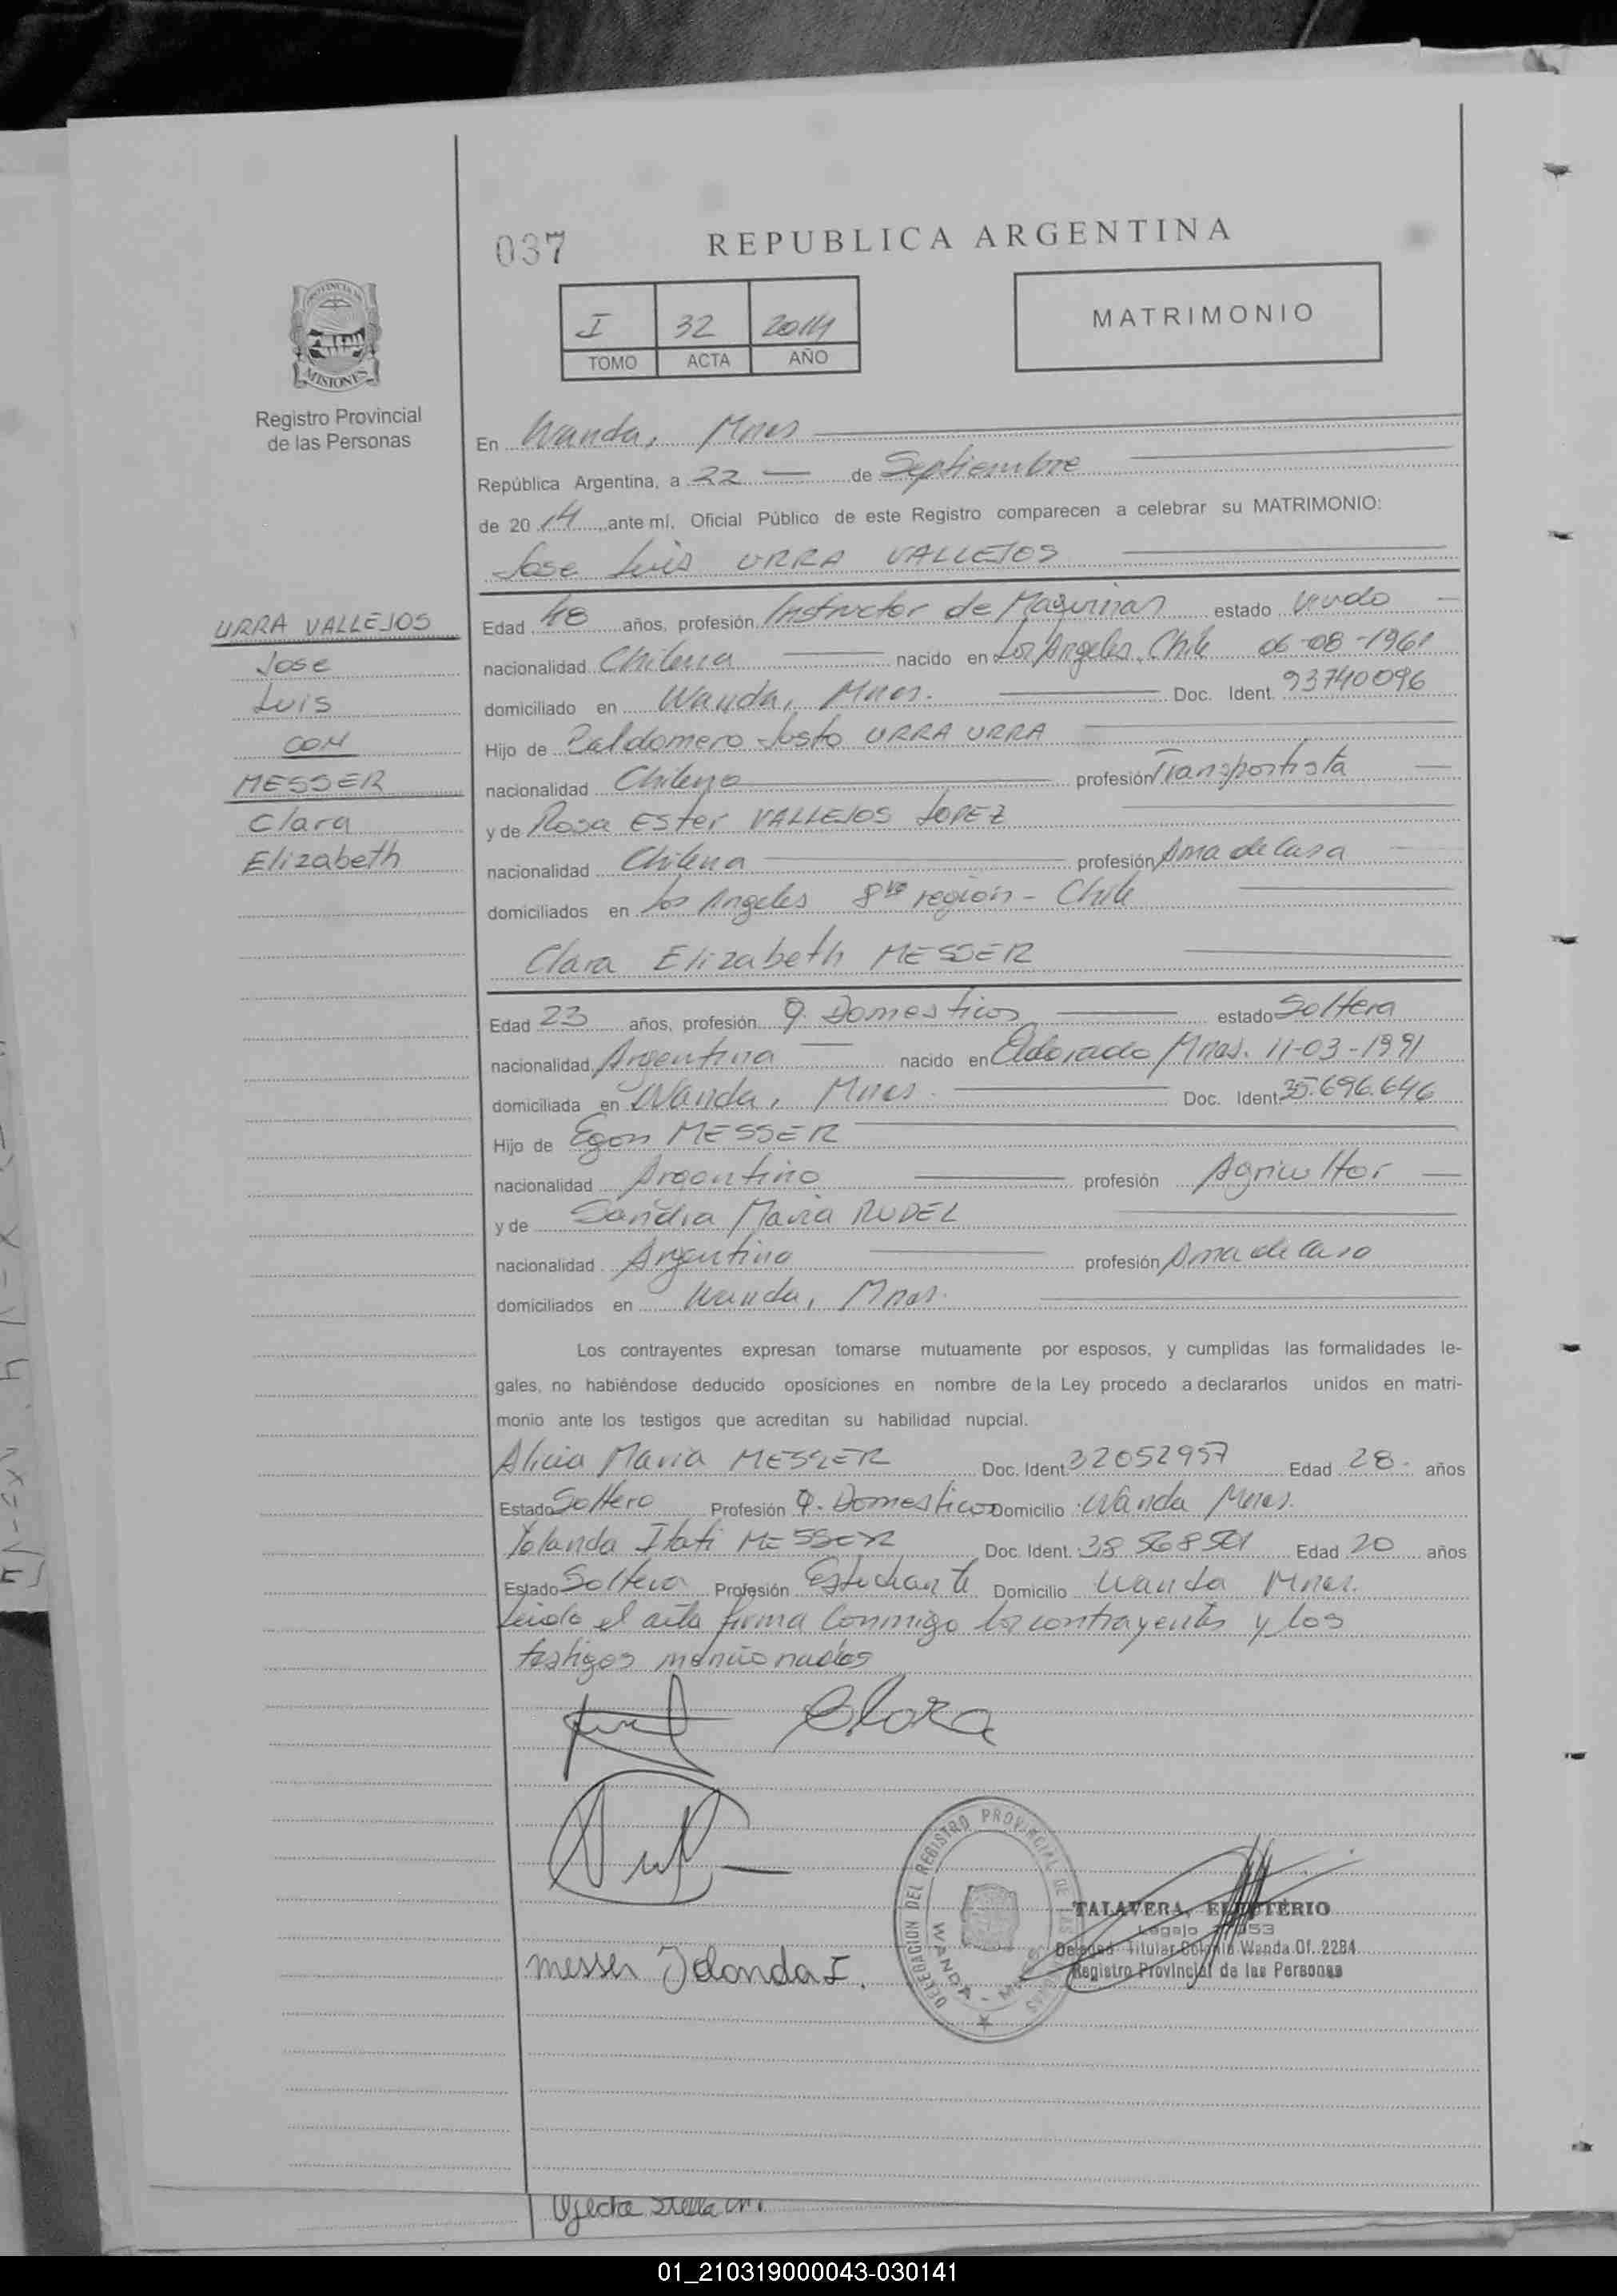 037
REPUBLICA ARGENTINA
PROVINCIA DE
MISIONES
Registro Provincial
de las Personas
I 32 2014
TOMO ACTA AÑO
MATRIMONIO
En Wanda, Mnes
República Argentina, a 22 de Septiembre
de 2014 ante mí, Oficial Público de este Registro comparecen a celebrar su MATRIMONIO:
Jose Luis URRA VALLEJOS
URRA VALLEJOS
Jose
Luis
CON
MESSER
Clara
Elizabeth
Edad 48 años, profesión Instructor de Maquinas estado Viudo
nacionalidad Chilena nacido en Los Angeles, Chile 06-08-1961
domiciliado en Wanda, Mnes. Doc. Ident. 93740096
Hijo de Baldomero Justo URRA URRA
nacionalidad Chileno profesión Transportista
y de Rosa Ester VALLEJOS LOPEZ
nacionalidad Chilena profesión Ama de Casa
domiciliados en Los Angeles 8va región - Chile
Clara Elizabeth MESSER
Edad 23 años, profesión Q. Domesticos estado Soltera
nacionalidad Argentina nacido en Eldorado Mnes. 11-03-1991
domiciliada en Wanda, Mnes. Doc. Ident. 35.696.646
Hijo de Egon MESSER
nacionalidad Argentino profesión Agricultor
y de Sandra Maria RUDEL
nacionalidad Argentina profesión Ama de Casa
domiciliados en Wanda, Mnes.
Los contrayentes expresan tomarse mutuamente por esposos, y cumplidas las formalidades le-
gales, no habiéndose deducido oposiciones en nombre de la Ley procedo a declararlos unidos en matri-
monio ante los testigos que acreditan su habilidad nupcial.
Alicia Maria MESSER Doc. Ident. 32052957 Edad 28 años
Estado Soltero Profesión Q. Domesticos Domicilio Wanda Mnes.
Yolanda Itati MESSER Doc. Ident. 38 568501 Edad 20 años
Estado Soltera Profesión Estudiante Domicilio Wanda Mnes.
Leido el acta firma Conmigo los contrayentes y los
testigos mencionados
Clara
DELEGACION DEL REGISTRO PROVINCIAL DE LAS PERSONAS
WANDA - MNES
TALAVERA, ELEUTERIO
Legajo
Delegad. Titular Colonia Wanda Of. 2284
Registro Provincial de las Personas
Messer Yolanda I.
Stella M.
01_210319000043-030141